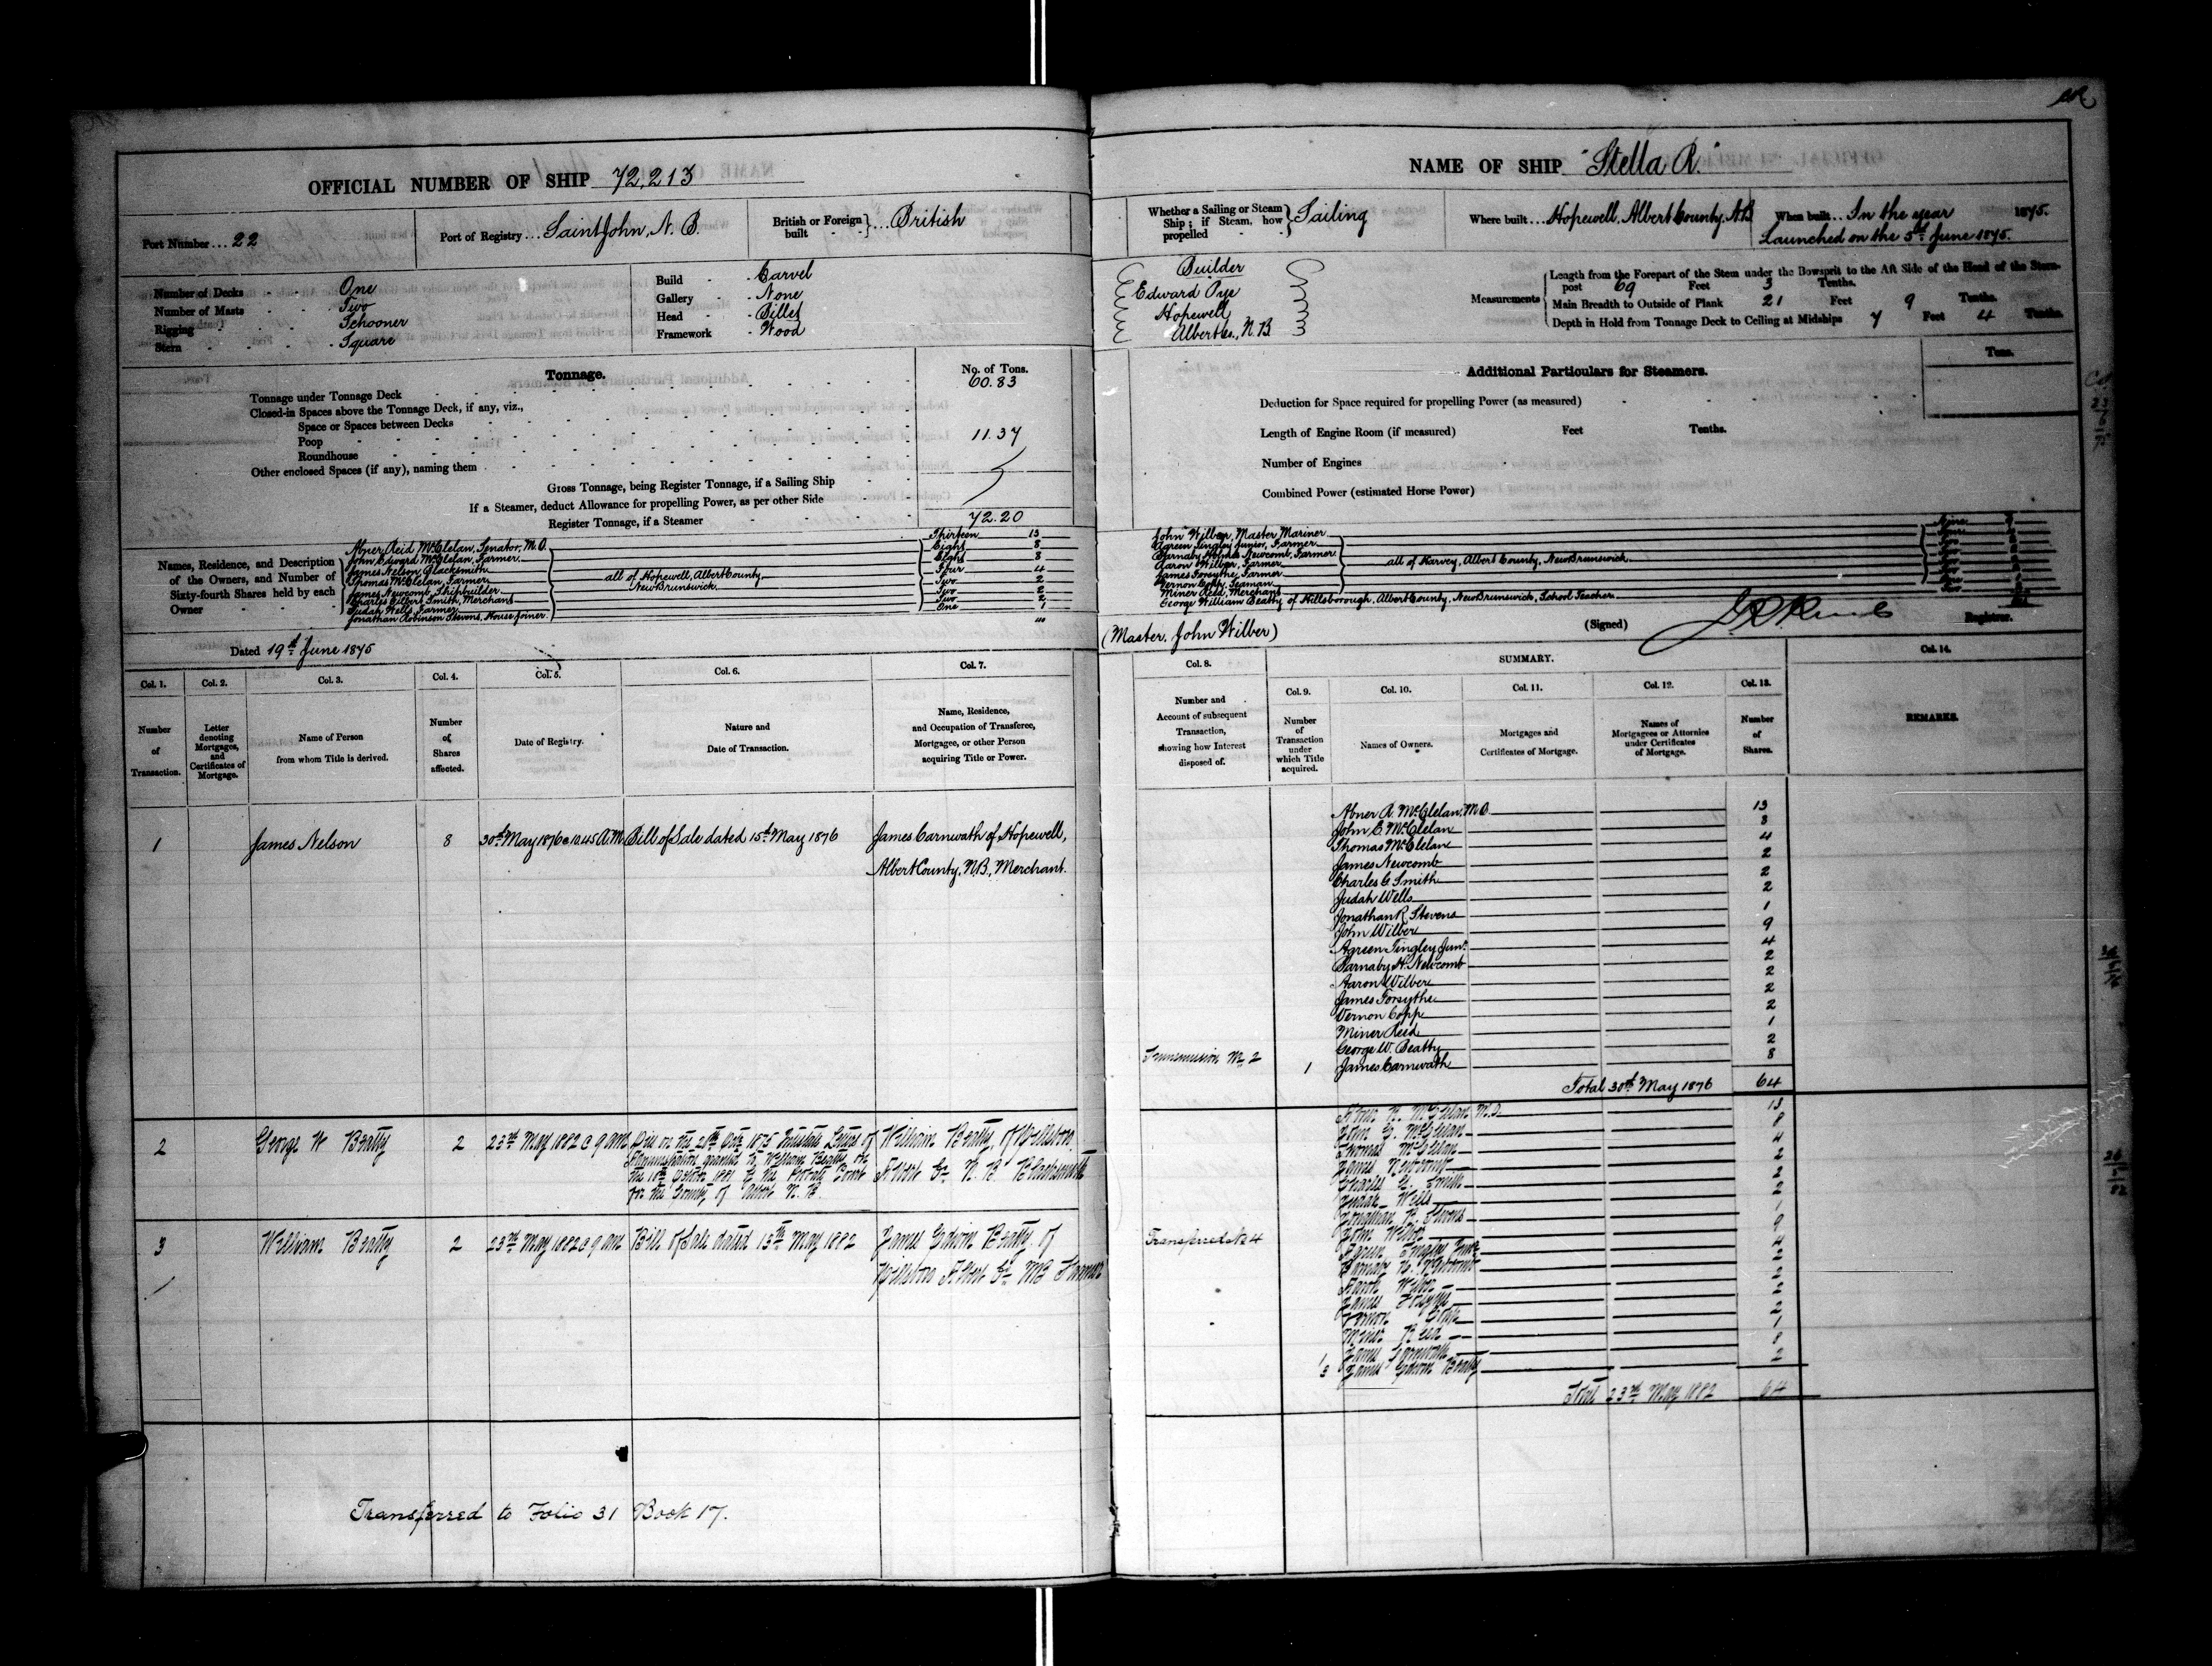 OFFICIAL NUMBER OF SHIP 72,213
Port Number... 22
Port of Registry... Saint John, N. B.
British or Foreign built } ... British
Number of Decks - - One
Number of Masts - - Two
Rigging - - Schooner
Stern - - - Square
Build - - Carvel
Gallery - None
Head - - Billet
Framework - Wood
Tonnage.
No. of Tons.
Tonnage under Tonnage Deck 60.83
Closed-in Spaces above the Tonnage Deck, if any, viz.,
Space or Spaces between Decks
Poop 11.37
Roundhouse
Other enclosed Spaces (if any), naming them
Gross Tonnage, being Register Tonnage, if a Sailing Ship
If a Steamer, deduct Allowance for propelling Power, as per other Side
Register Tonnage, if a Steamer 72.20
Names, Residence, and Description of the Owners, and Number of Sixty-fourth Shares held by each Owner
Abner Reid McClelan, Senator, M.D. Thirteen 13
John Edward McClelan, Farmer Eight 8
James Nelson Blacksmith Eight 8
Thomas McClelan, Farmer Four 4
James Newcomb, Shipbuilder Two 2
Charles Gilbert Smith, Merchant Two 2
Judah Wells, Farmer Two 2
Jonathan Robinson Stevens, House Joiner One 1
all of Hopewell, Albert County, New Brunswick
40
Dated 19th June 1875
NAME OF SHIP "Stella R."
Whether a Sailing or Steam Ship; if Steam, how propelled } Sailing
Where built... Hopewell, Albert County, N.B
When built... In the year 1875.
Launched on the 5th June 1875.
Builder
Edward Pye
Hopewell
Albert Co., N. B
Measurements
Length from the Forepart of the Stem under the Bowsprit to the Aft Side of the Head of the Stern-
post 69 Feet 3 Tenths.
Main Breadth to Outside of Plank 21 Feet 9 Tenths.
Depth in Hold from Tonnage Deck to Ceiling at Midships 7 Feet 4 Tenths.
Additional Particulars for Steamers.
Tons.
Deduction for Space required for propelling Power (as measured)
Length of Engine Room (if measured) Feet Tenths.
Number of Engines
Combined Power (estimated Horse Power)
John Wilber, Master Mariner Nine 9
Agreen Tingley Junior, Farmer
Barnaby Newcomb, Farmer
Aaron Wilber, Farmer
James Forsythe, Farmer
Vernon Copp, Seaman
Miner Reid, Merchant
all of Harvey, Albert County, New Brunswick
George William Beatty of Hillsborough, Albert County, New Brunswick, School Teacher
(Master, John Wilber)
(Signed) Registrar.
Col. 1. Col. 2. Col. 3. Col. 4. Col. 5. Col. 6. Col. 7.
Number of Transaction.
Letter denoting Mortgages, and Certificates of Mortgage.
Name of Person from whom Title is derived.
Number of Shares affected.
Date of Registry.
Nature and Date of Transaction.
Name, Residence, and Occupation of Transferee, Mortgagee, or other Person acquiring Title or Power.
1 James Nelson 8 30th May 1876 @ 10.45 A.M. Bill of Sale dated 15th May 1876 James Carnwath of Hopewell,
Albert County, N.B., Merchant.
2 George W Beatty 2 23rd May 1882 @ 9 am Died on the 1875 Intestate Letters of
Administration granted to William Beatty on
the 18th 1881 by the Probate Court
for the County of Albert N. B.
William Beatty of
Albert Co. N. B. Blacksmith
3 William Beatty 2 23rd May 1882 @ 9 am Bill of Sale dated 15th May 1882 James Edwin Beatty of
Albert Co. NB Farmer
Transferred to Folio 31 Book 17.
Col. 8. SUMMARY. Col. 14.
Col. 9. Col. 10. Col. 11. Col. 12. Col. 13.
Number and Account of subsequent Transaction, showing how Interest disposed of.
Number of Transaction under which Title acquired.
Names of Owners.
Mortgages and Certificates of Mortgage.
Names of Mortgagees or Attornies under Certificates of Mortgage.
Number of Shares.
REMARKS.
Abner R. McClelan, M.D. 13
John E. McClelan 8
Thomas McClelan 4
James Newcomb 2
Charles G. Smith 2
Judah Wells 2
Jonathan R. Stevens 1
John Wilber 9
Agreen Tingley Junr. 4
Barnaby H. Newcomb 2
Aaron Wilber 2
James Forsythe 2
Vernon Copp 2
Miner Reid 1
George W. Beatty 2
Transmission No 2 1 James Carnwath 8
Total 30th May 1876 64
Abner R. McClelan M.D. 13
John E. McClelan 8
Thomas McClelan 4
James Newcomb 2
Charles G. Smith 2
Judah Wells 2
Jonathan R. Stevens 1
John Wilber 9
Transferred No 4
Agreen Tingley Junr 4
Barnaby H. Newcomb 2
Aaron Wilber 2
James Forsythe 2
Vernon Copp 2
Miner Reid 1
1 James Carnwath 8
3 James Edwin Beatty 2
Total 23rd May 1882 64